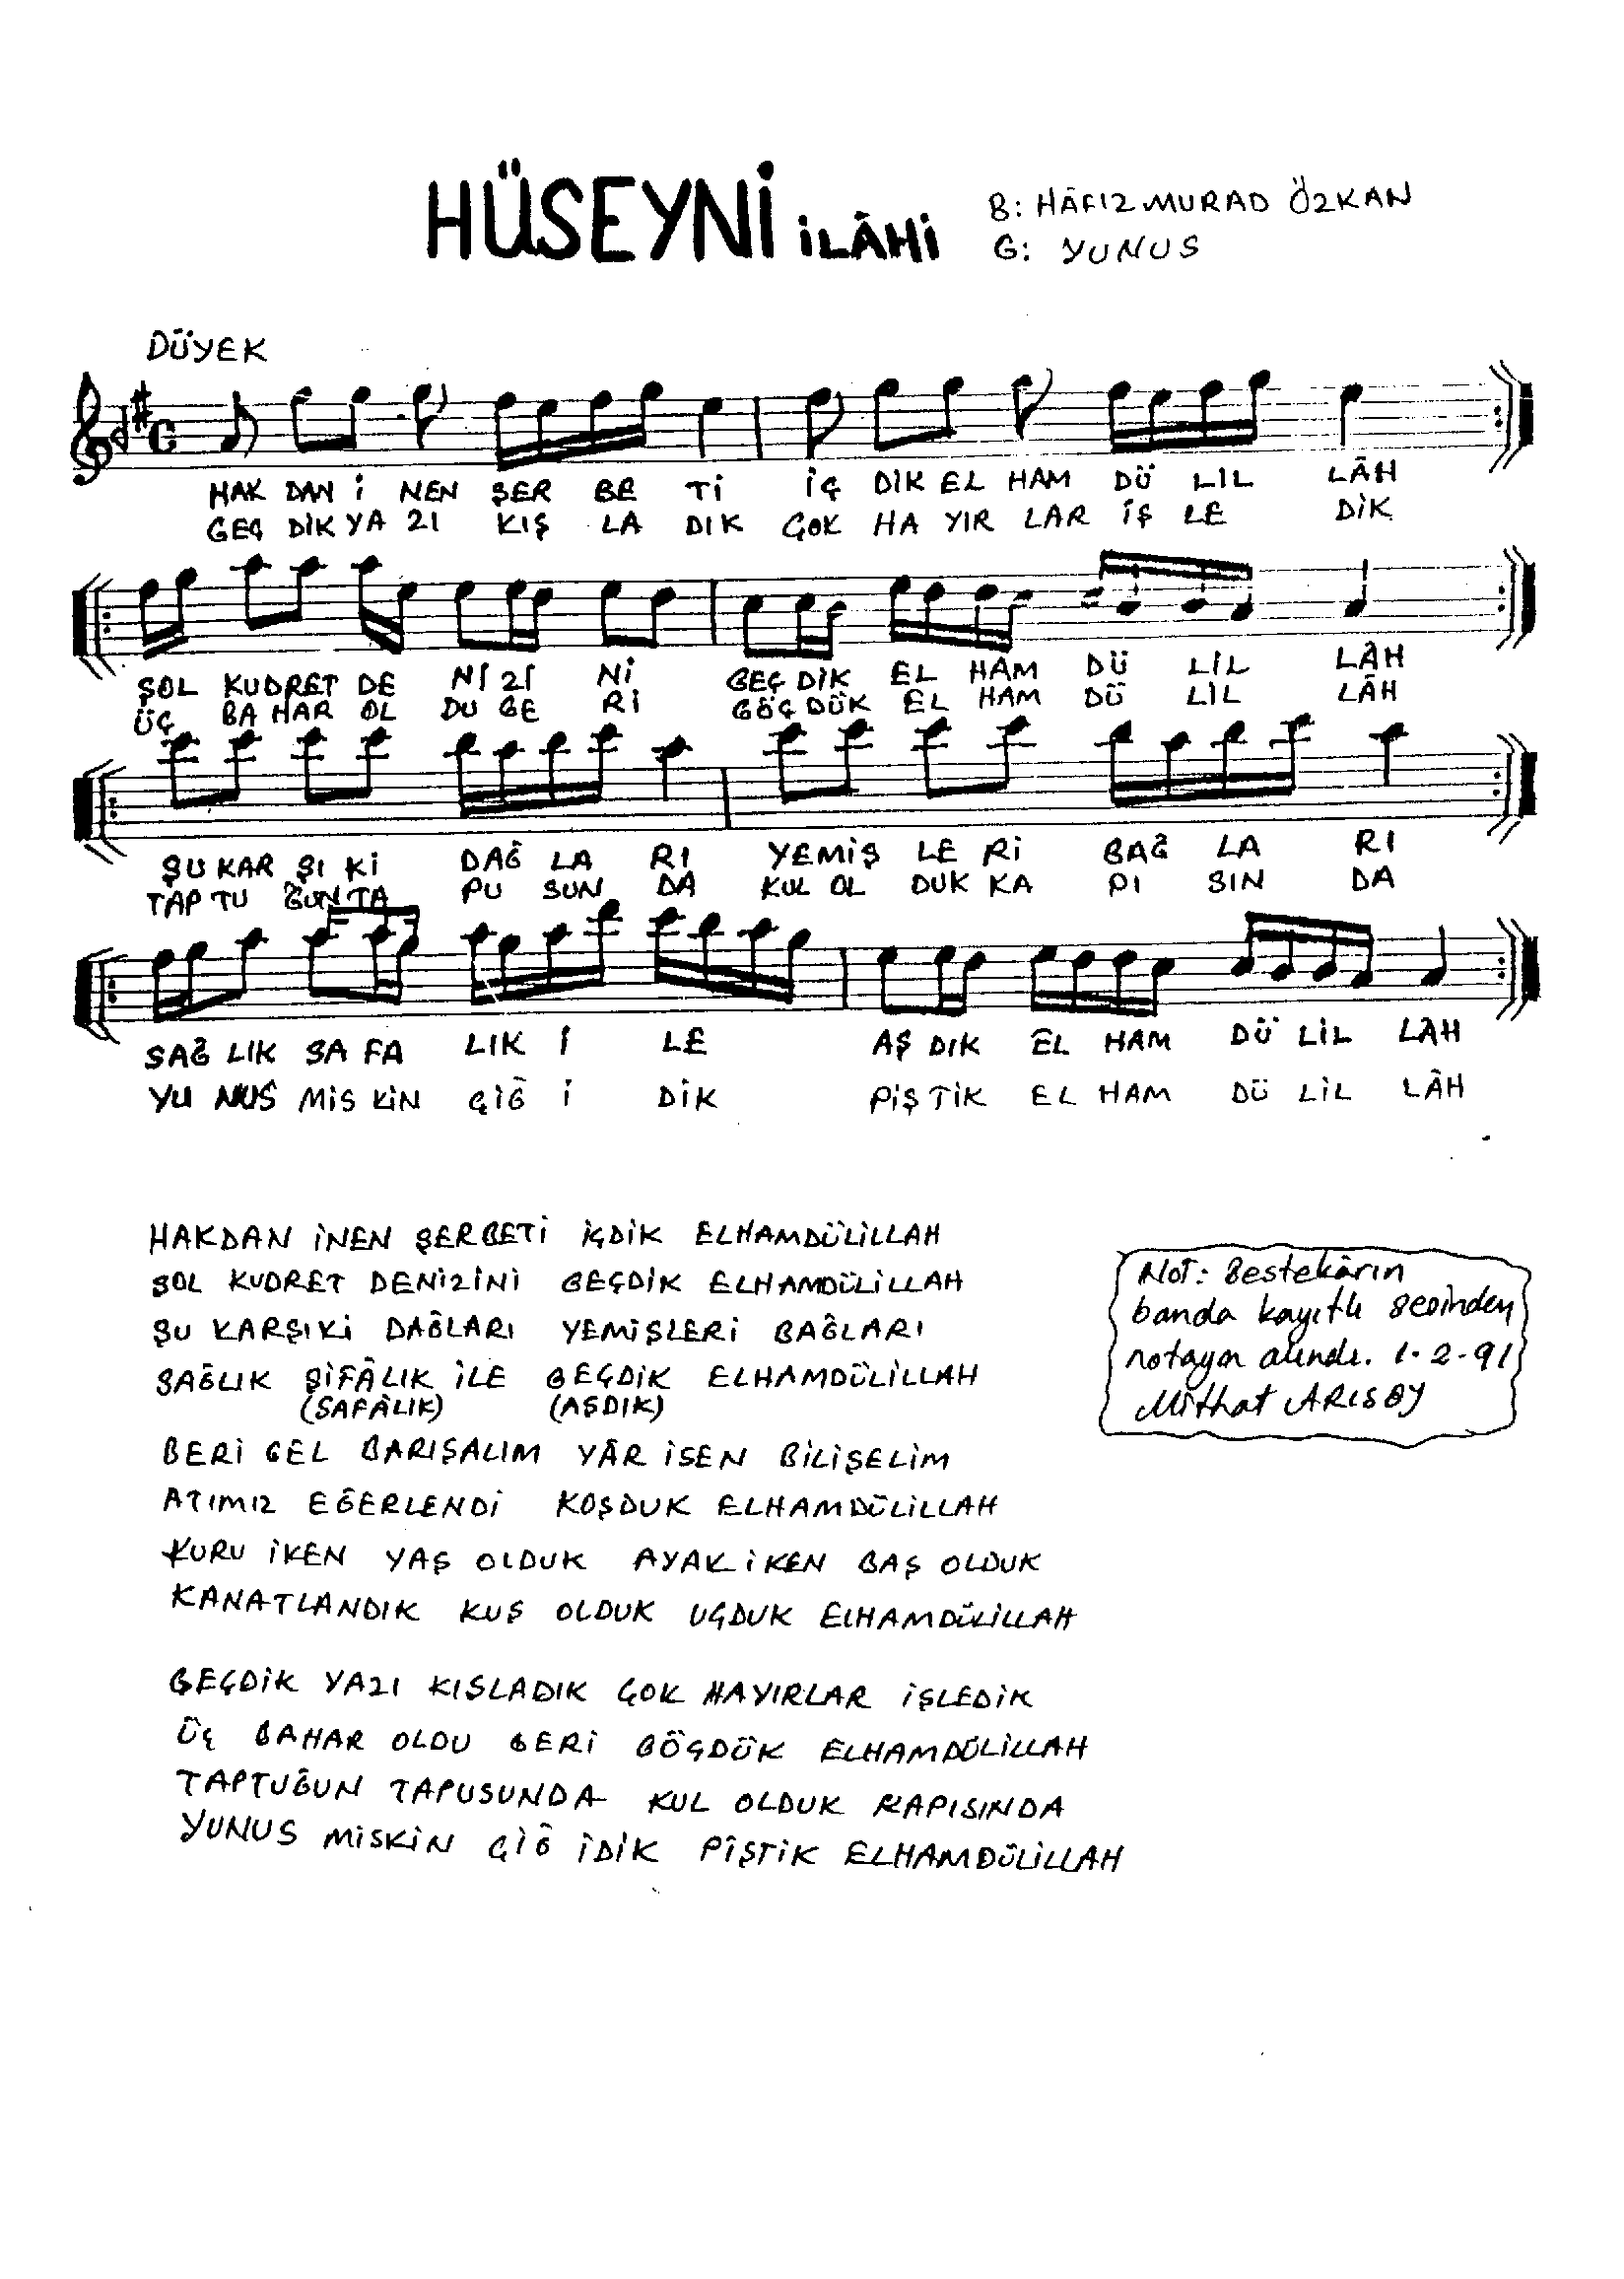 HÜSEYNİ İLÂHİ
B: HÂFIZ MURAD ÖZKAN
G: YUNUS
DÜYEK
HAK DAN İ NEN ŞER BE Tİ İÇ DİK EL HAM DÜ LİL LÂH
GEÇ DİK YA ZI KIŞ LA DIK ÇOK HA YIR LAR İŞ LE DİK
ŞOL KUDRET DE Nİ Zİ Nİ GEÇ DİK EL HAM DÜ LİL LÂH
ÜÇ BA HAR OL DU GE Rİ GÖÇ DÜK EL HAM DÜ LİL LÂH
ŞU KAR ŞI Kİ DAĞ LA RI YEMİŞ LE Rİ BAĞ LA RI
TAP TU ĞUN TA PU SUN DA KUL OL DUK KA PI SIN DA
SAĞ LIK SA FA LIK İ LE AŞ DIK EL HAM DÜ LİL LÂH
YU NUS MİS KİN ÇİĞ İ DİK PİŞ TİK EL HAM DÜ LİL LÂH
HAKDAN İNEN ŞERBETİ İÇDİK ELHAMDÜLİLLAH
ŞOL KUDRET DENİZİNİ GEÇDİK ELHAMDÜLİLLAH
ŞU KARŞIKİ DAĞLARI YEMİŞLERİ BAĞLARI
SAĞLIK ŞİFÂLIK İLE GEÇDİK ELHAMDÜLİLLAH
(SAFÂLIK) (AŞDIK)
BERİ GEL BARIŞALIM YÂR İSEN BİLİŞELİM
ATIMIZ EĞERLENDİ KOŞDUK ELHAMDÜLİLLAH
KURU İKEN YAŞ OLDUK AYAK İKEN BAŞ OLDUK
KANATLANDIK KUŞ OLDUK UÇDUK ELHAMDÜLİLLAH
GEÇDİK YAZI KISLADIK ÇOK HAYIRLAR İŞLEDİK
ÜÇ BAHAR OLDU GERİ GÖÇDÜK ELHAMDÜLİLLAH
TAPTUĞUN TAPUSUNDA KUL OLDUK KAPISINDA
YUNUS MİSKİN ÇİĞ İDİK PİŞTİK ELHAMDÜLİLLAH
Not: Bestekârın
banda kayıtlı sesinden
notaya alındı. 1.2.91
Mithat ARISOY